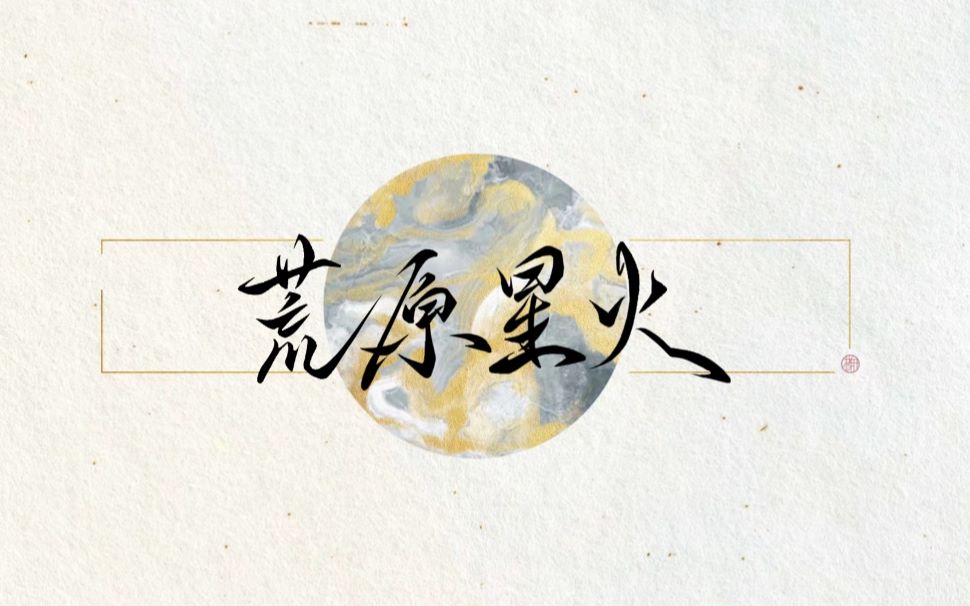 荒原星火